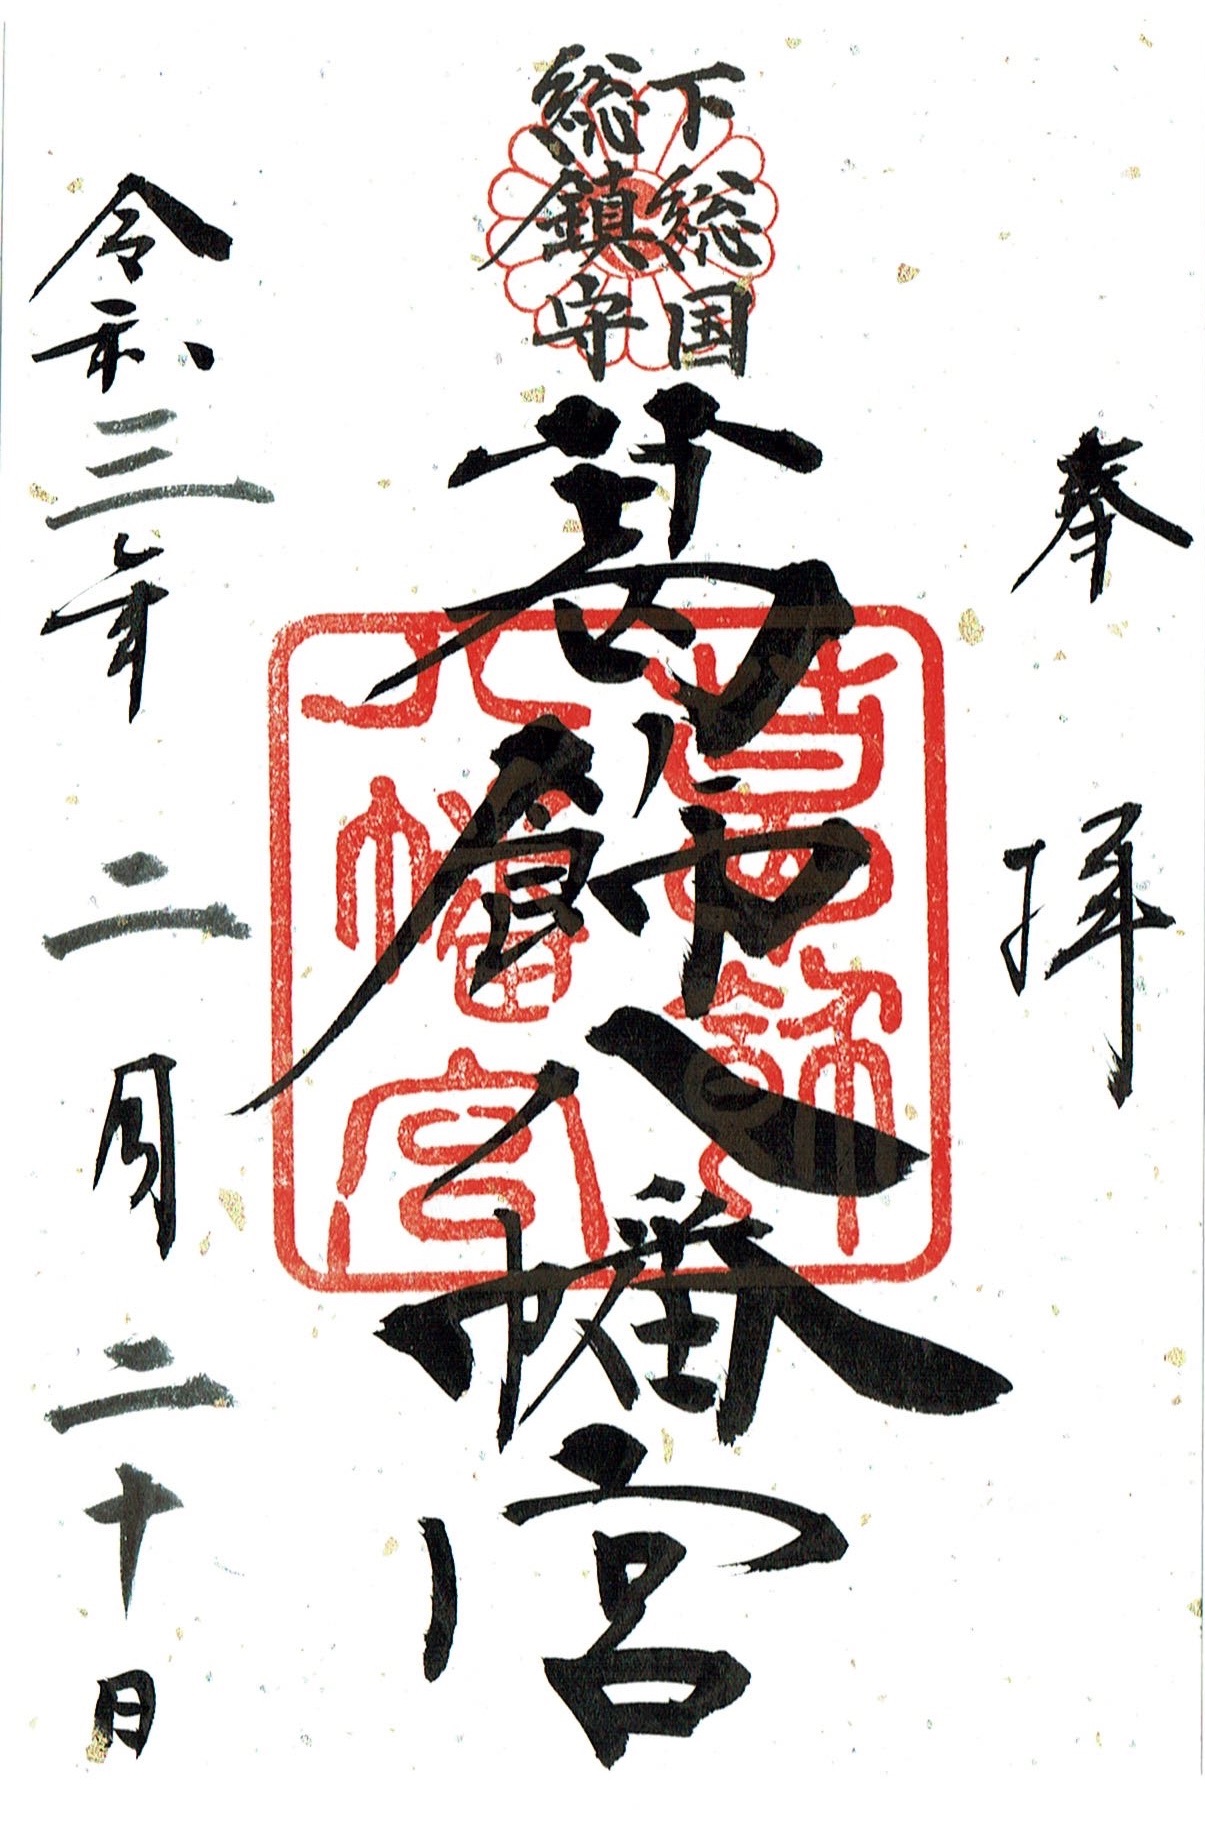 奉拝
下総国
総鎮守
葛飾八幡宮
葛飾
八幡宮
令和三年二月二十日